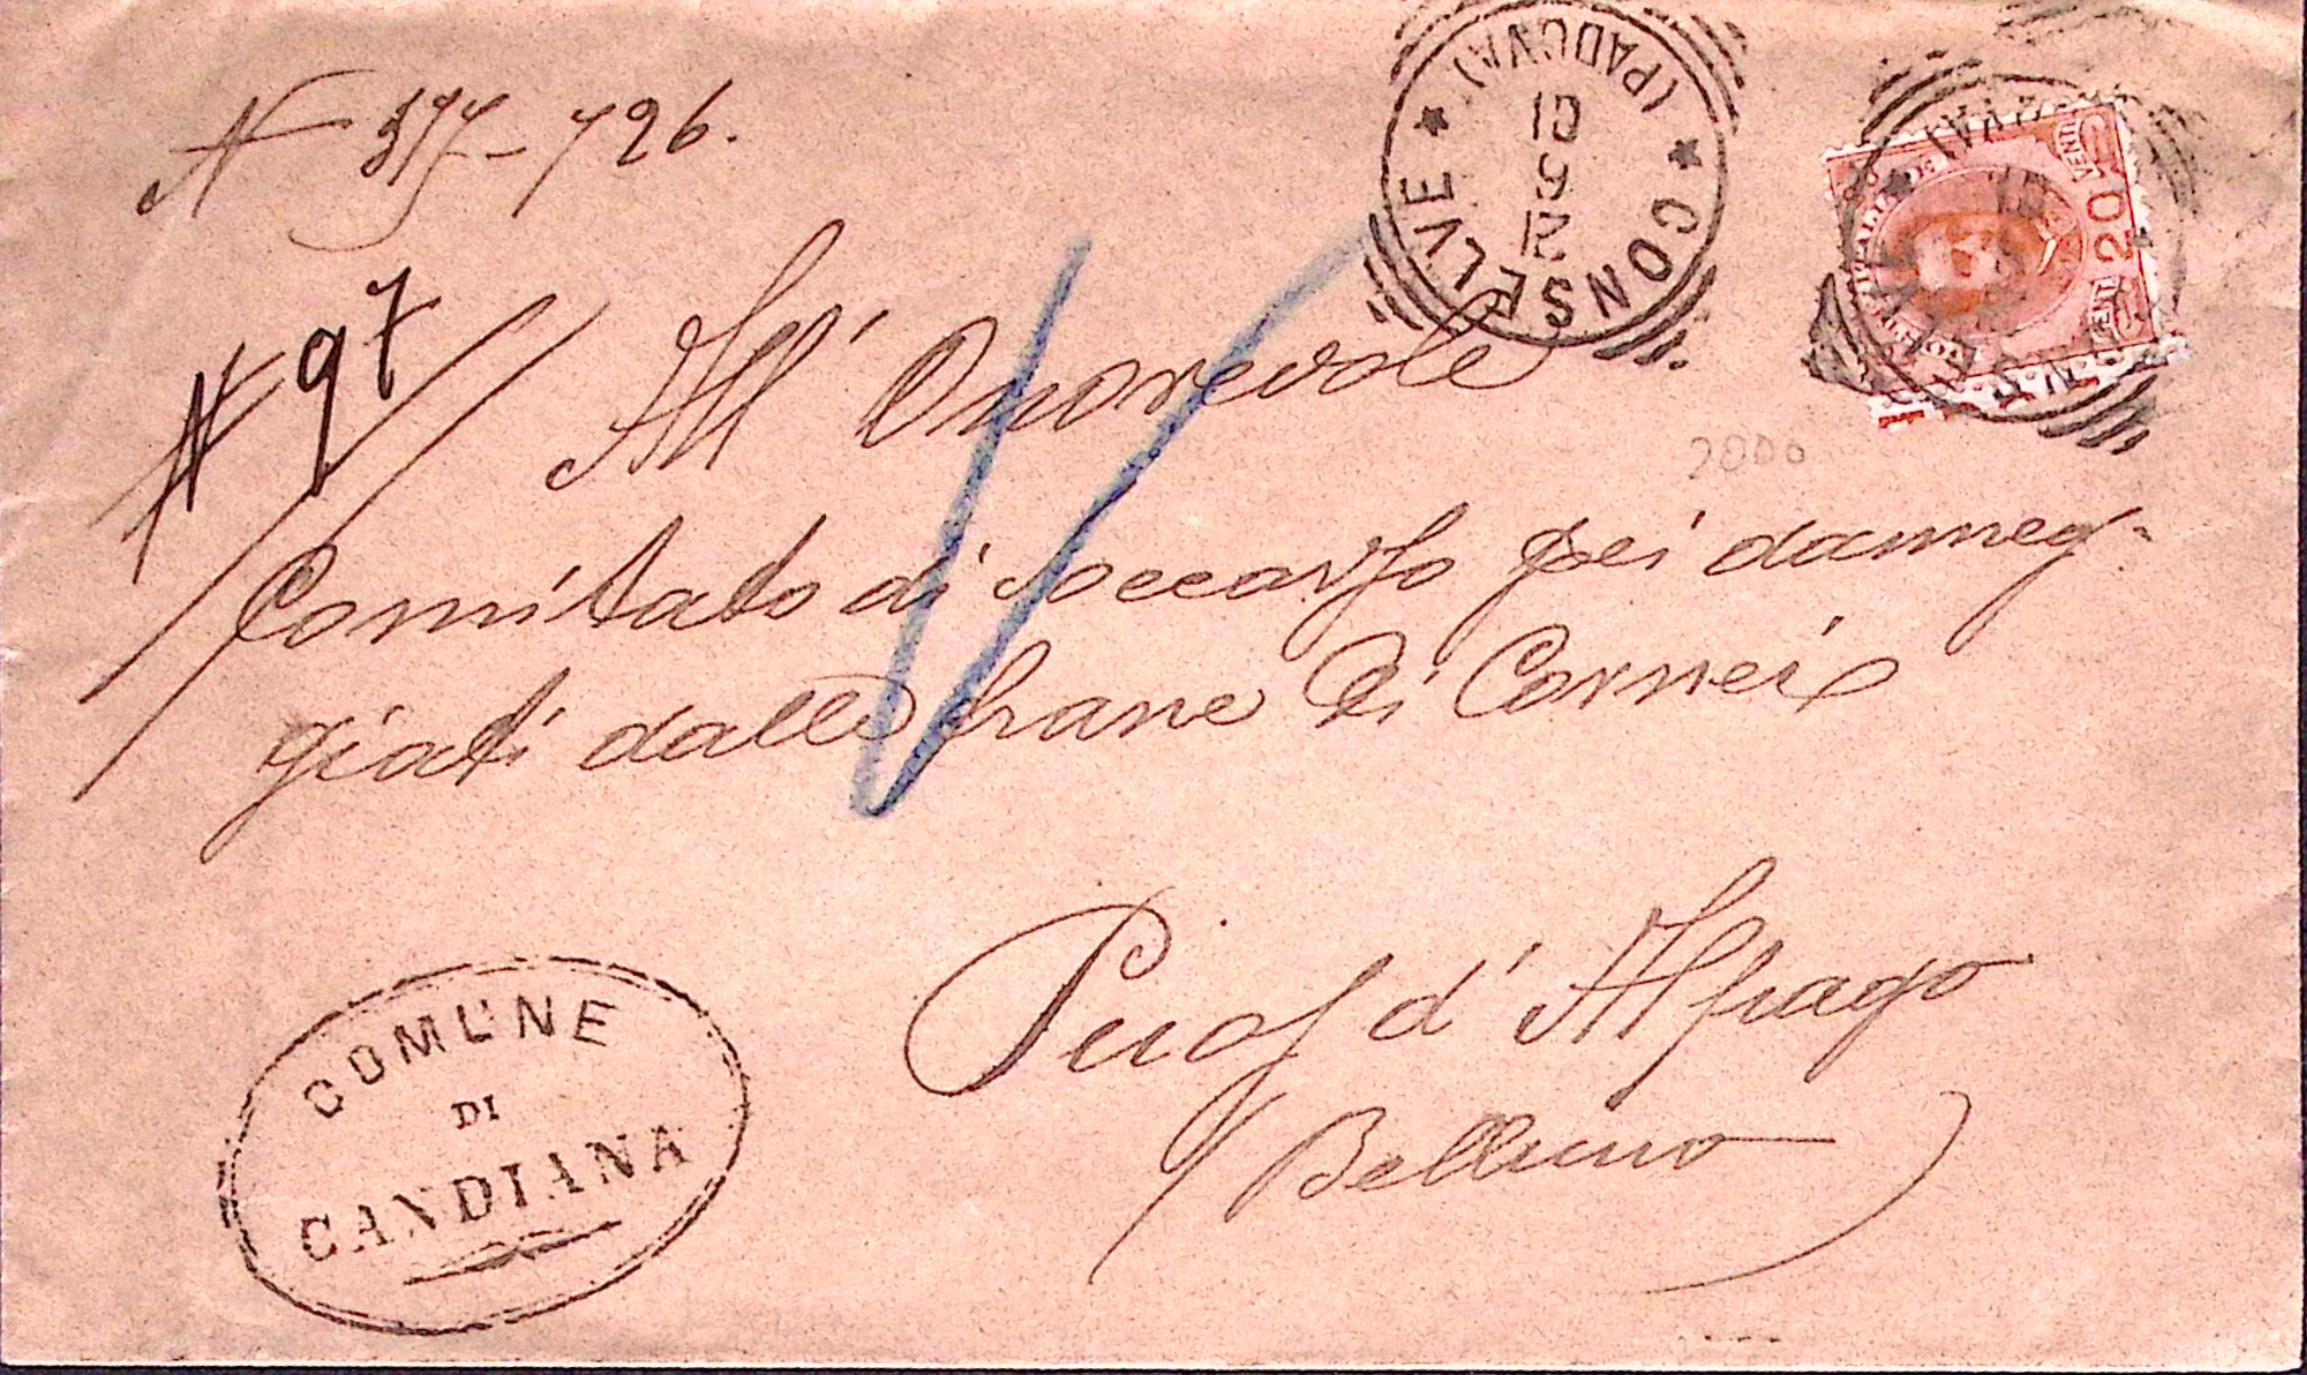 N 597-726.
CONSELVE (PADOVA)
N 97
All' Onorevole
2000
Comitato di soccorso pei danneg-
giati dalle frane di Cornei
Puos d'Alpago
Belluno
COMUNE
DI
CANDIANA
CENT. 20 VENTI